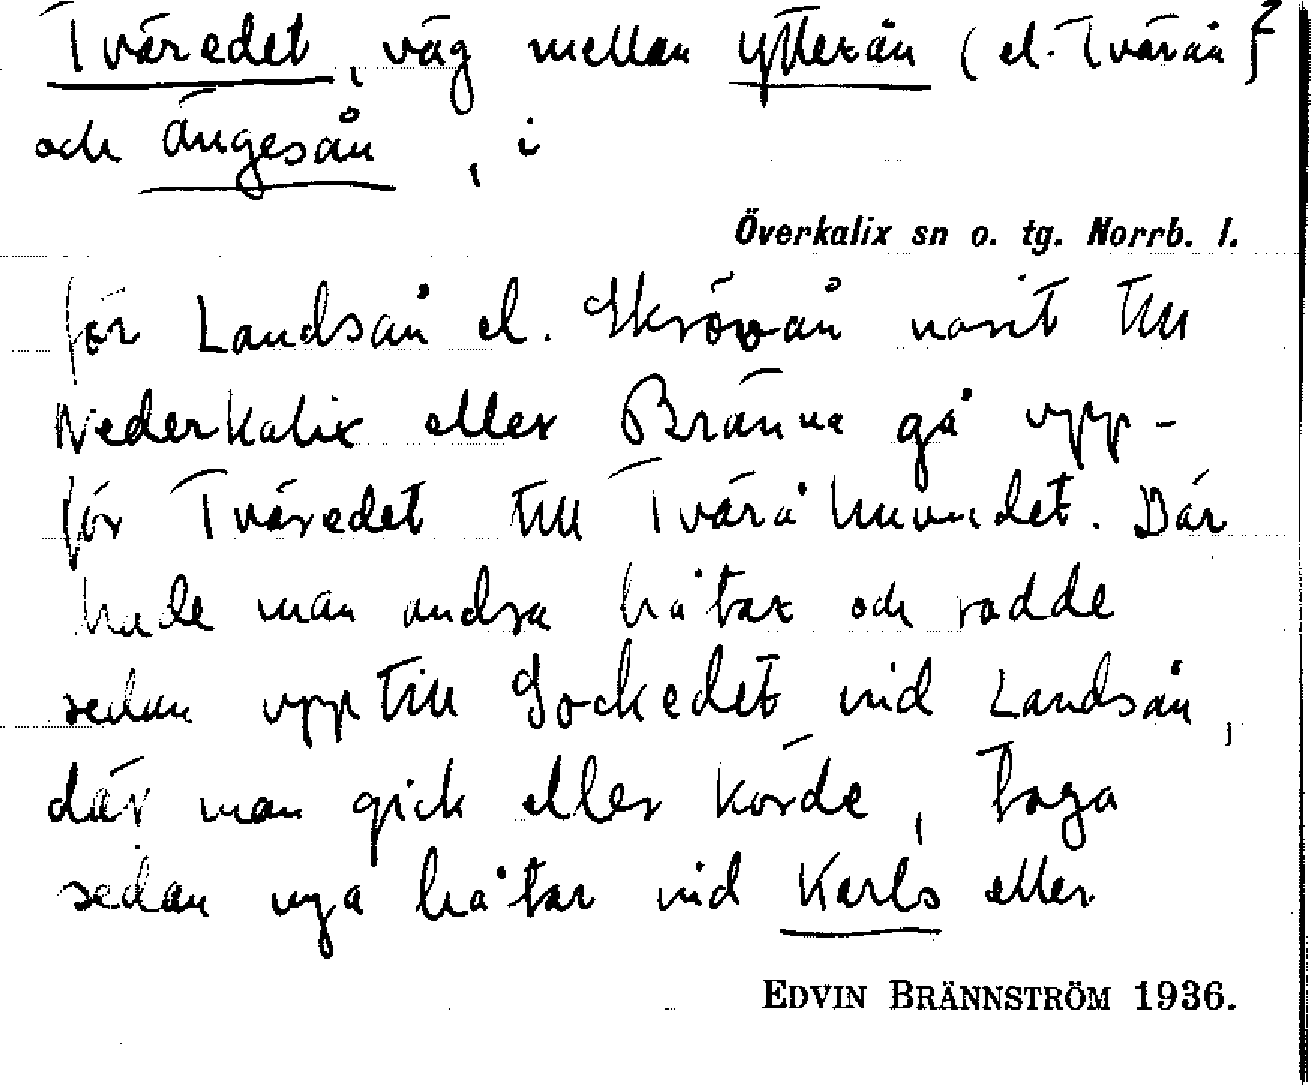 Tväredet, väg mellan Ytterån (el. Tvärån)
och Ängesån, i
Överkalix sn o. tg. Norrb. l.
för Landsån el. Skrövån varit till
Nederkalix eller Bränna gå upp-
för Tväredet till Tvärå huvudet. Där
hade man andra båtar och rodde
sedan upp till Sockedet vid Landsån,
där man gick eller körde, toga
sedan nya båtar vid Karls eller
EDVIN BRÄNNSTRÖM 1936.